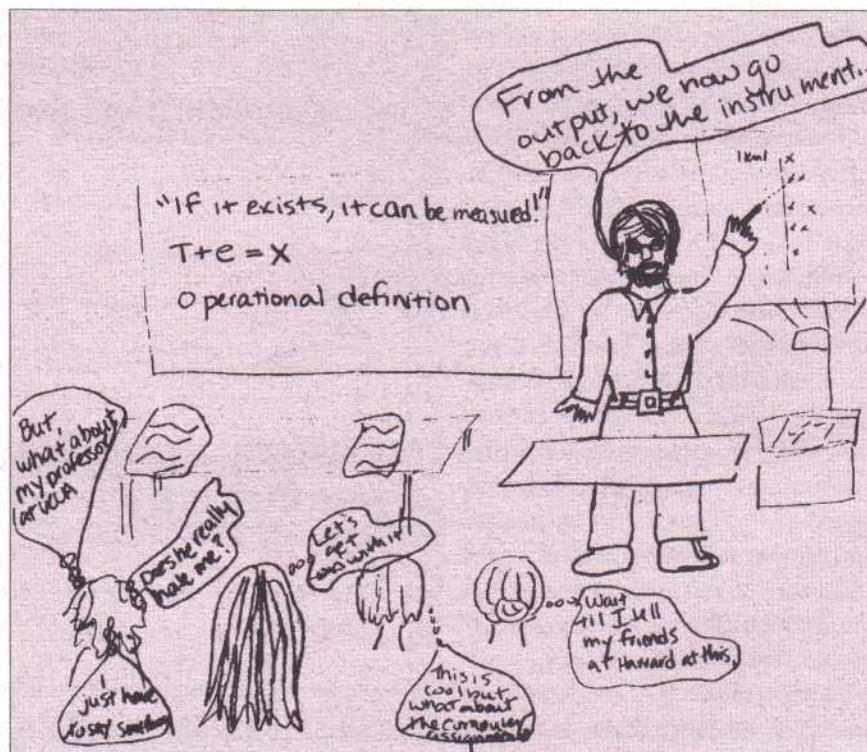 From the
output, we now go
back to the instrument..
1km1 x
"If it exists, it can be measured!"
T+e=x
Operational definition
But,
what about
my professor
at UCLA
Does he really
hate me?
I
just have
to say something
Let's
get
on with it
This is
cool but
what about
the computer
assignment
Wait
til I tell
my friends
at Harvard at this.